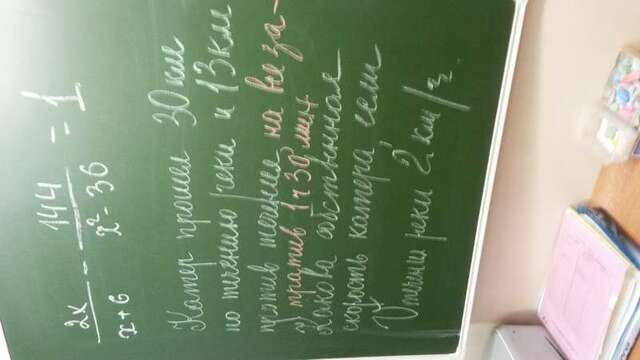 2x/x+6 - 144/x²-36 = 1
Катер прошел 30 км
по течению реки и 13 км
против течения, на все за-
тратив 1 ч 30 мин.
Какова собственная
скорость катера, если
V течения реки 2 км/ч.